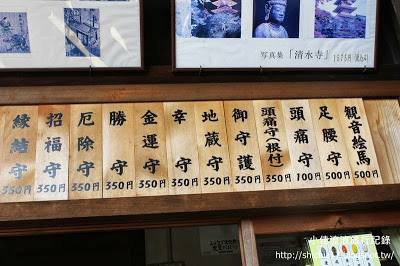 写真集「清水寺」
観音絵馬 500円
足腰守 500円
頭痛 100円
頭痛守(根付) 350円
御守護 350円
地蔵守 350円
幸守 350円
金運守 350円
勝守 350円
厄除守 350円
招福守 350円
縁結守 350円